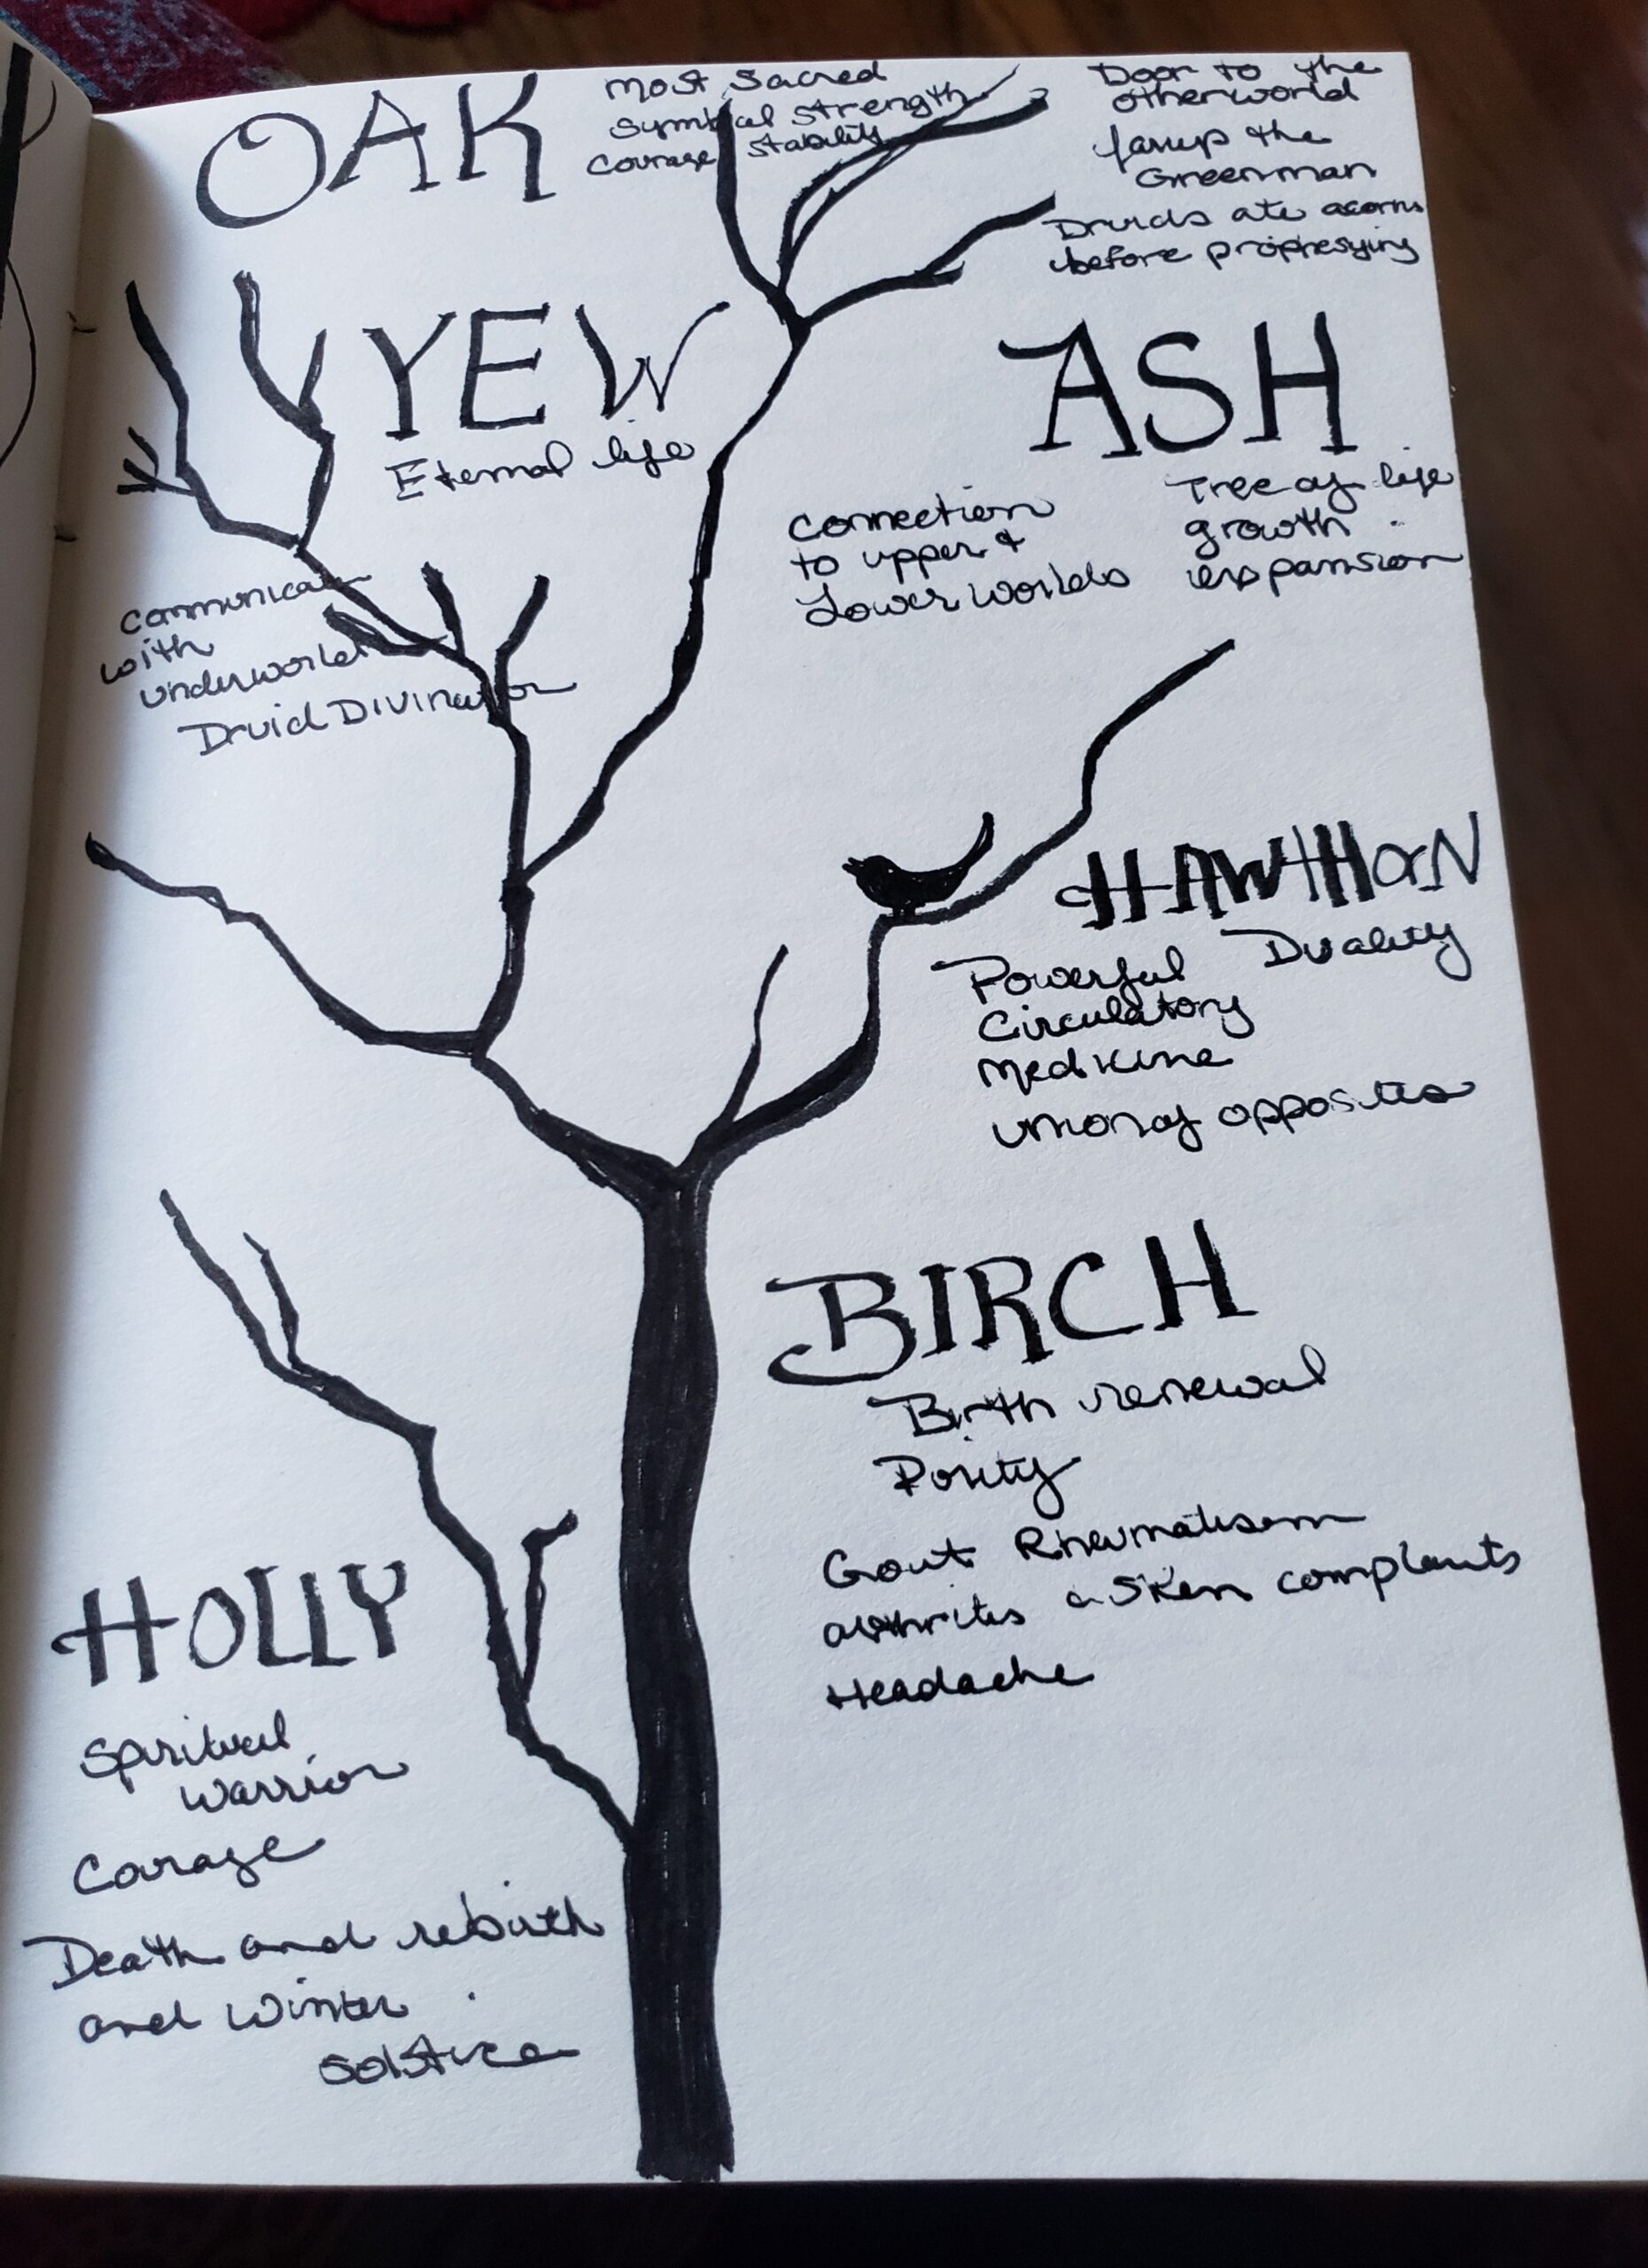 OAK
most sacred
symbol strength
courage stability
Door to the
otherworld
the
Greenman
Druids ate acorns
before prophesying
YEW
Eternal life
communicate
with
underworld
Druid Divination
ASH
connection
to upper &
Lower Worlds
Tree of life
growth
expansion
HAWTHORN
Powerful
Circulatory
medicine
Duality
union of opposites
BIRCH
Birth renewal
Purity
Gout Rheumatism
arthrites & Sken complaints
Headache
HOLLY
Spiritual
warrior
Courage
Death and rebirth
and winter
solstice